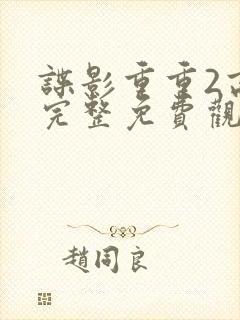 諜影重重2
完整免費觀
趙同良